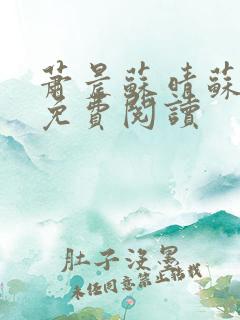 蕭景蘇晴蘇
免費閱讀
肚子沒墨
未經同意禁止轉載